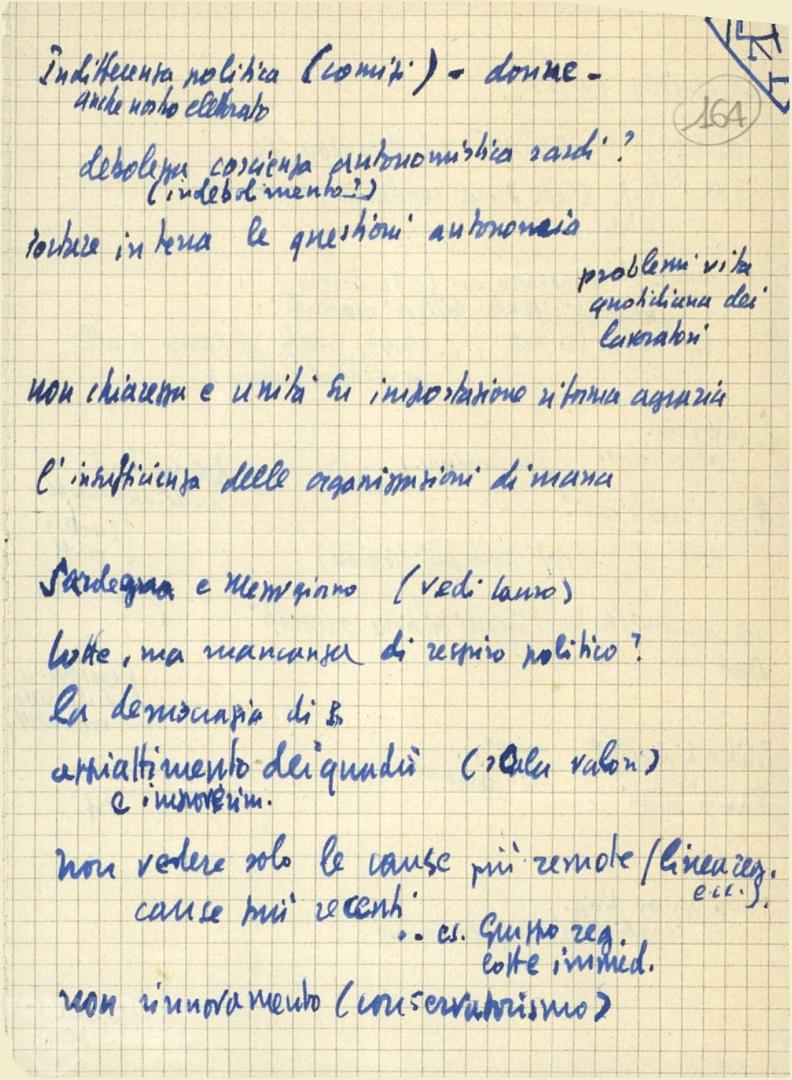 Indifferenza politica (comizi) - donne -
anche nostro elettorato
164
debolezza coscienza autonomistica sardi?
(indebolimento?)
portare in terra le questioni autonomia
problemi vita
quotidiana dei
lavoratori
non chiarezza e unità su impostazione riforma agraria
l'insufficienza delle organizzazioni di massa
Sardegna e Mezzogiorno (vedi Lauro)
lotte, ma mancanza di respiro politico?
la democrazia di
appiattimento dei quadri (scala valori)
e impoverim.
non vedere solo le cause più remote (linea reg.
ecc.).
cause più recenti
es. Gruppo reg.
lotte immed.
non rinnovamento (conservatorismo)